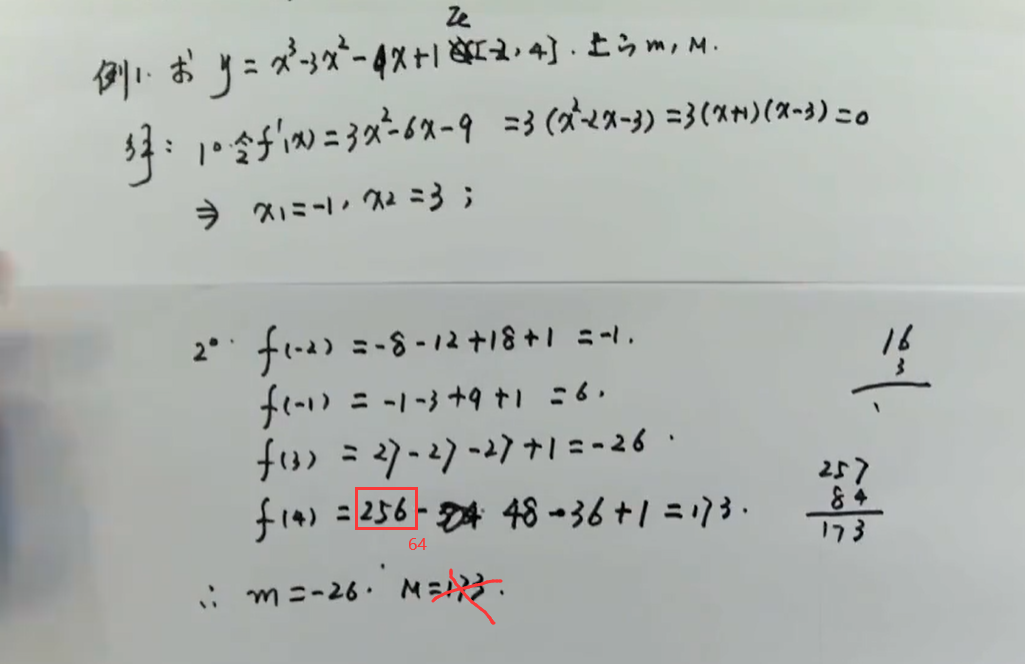 例1. 求 y = x³-3x²-9x+1 在[-2, 4]. 上的 m, M.
解: 1°. 令f'(x) = 3x²-6x-9 = 3(x²-2x-3) = 3(x+1)(x-3) = 0
⇒ x₁ = -1, x₂ = 3 ;
2°. f(-2) = -8-12+18+1 = -1.
16
3
f(-1) = -1-3+9+1 = 6.
f(3) = 27-27-27+1 = -26.
f(4) = 256- 48-36+1 = 173.
64
257
84
173
∴ m = -26. M = 173.